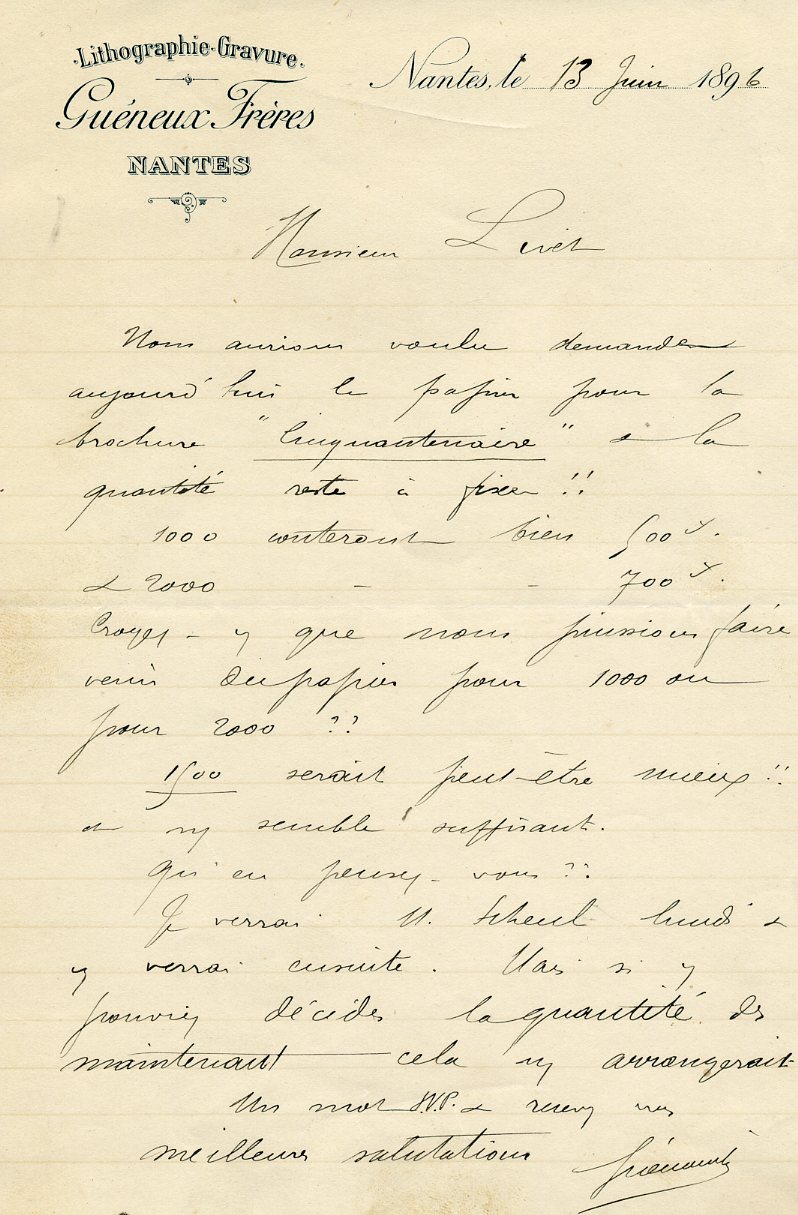 Lithographie-Gravure.
Guéneux Frères
NANTES
Nantes, le 13 Juin 1896
Monsieur Livet
Nous aurions voulu demander
aujourd'hui le papier pour la
brochure "Cinquantenaire" & la
quantité reste à fixer!!
1000 couteront bien 500 f.
& 2000 - - 700 f.
Croyez-v que nous puissions faire
venir du papier pour 1000 ou
pour 2000 ??
1500 serait peut-être mieux!!
& ns semble suffisant.
Qu'en pensez-vous??
Je verrai M. lundi &
v verrai ensuite. Mais si v
pouviez décider la quantité dès
maintenant cela ns arrangerait
Un mot S.V.P. & recevez nos
meilleures salutations